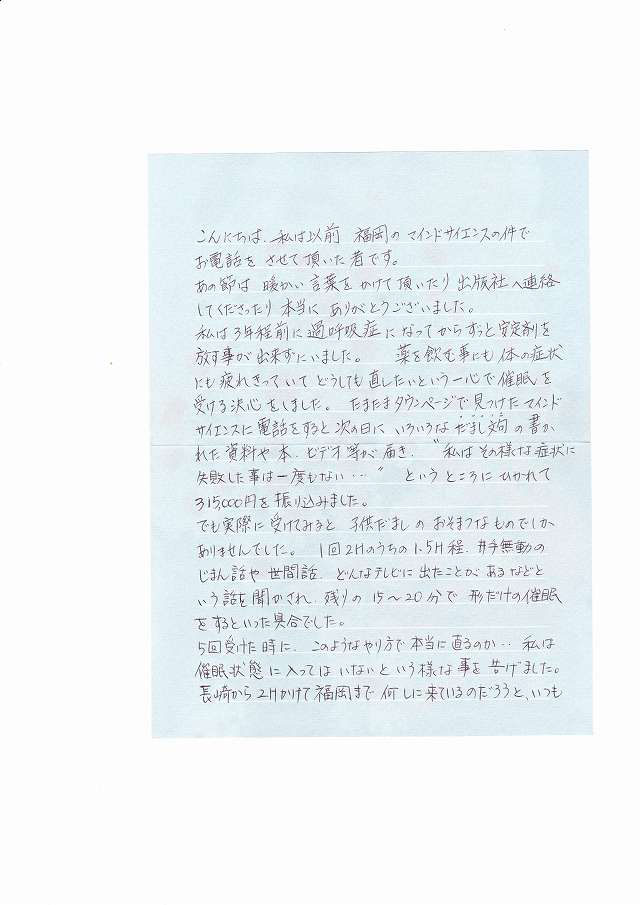 こんにちは、私は以前 福岡の マインドサイエンスの件で
お電話を させて頂いた者です。
あの節は 暖かい言葉を かけて頂いたり 出版社へ連絡
してくださったり 本当に ありがとうございました。
私は3年程前に 過呼吸症に なってからずっと安定剤を
放す事が出来ずにいました。 薬を飲む事にも 体の症状
にも疲れきっていて どうしても直したいという一心で催眠を
受ける決心をしました。 たまたまタウンページで見つけたマインド
サイエンスに電話をすると次の日に いろいろなだまし文句の書か
れた資料や本、ビデオ等が届き、“私はその様な症状に
失敗した事は一度もない・・・” というところにひかれて
315,000円を振り込みました。
でも実際に受けてみると 子供だましのおそまつなものでしか
ありませんでした。 1回2Hのうちの1.5H程、井手無動の
じまん話や世間話、どんなテレビに出たことがあるなどと
いう話を聞かされ、残りの15～20分で 形だけの催眠
をするといった具合でした。
5回受けた時に、このようなやり方で本当に直るのか・・ 私は
催眠状態に入ってはいないという様な事を告げました。
長崎から2Hかけて福岡まで何しに来ているのだろうと、いつも